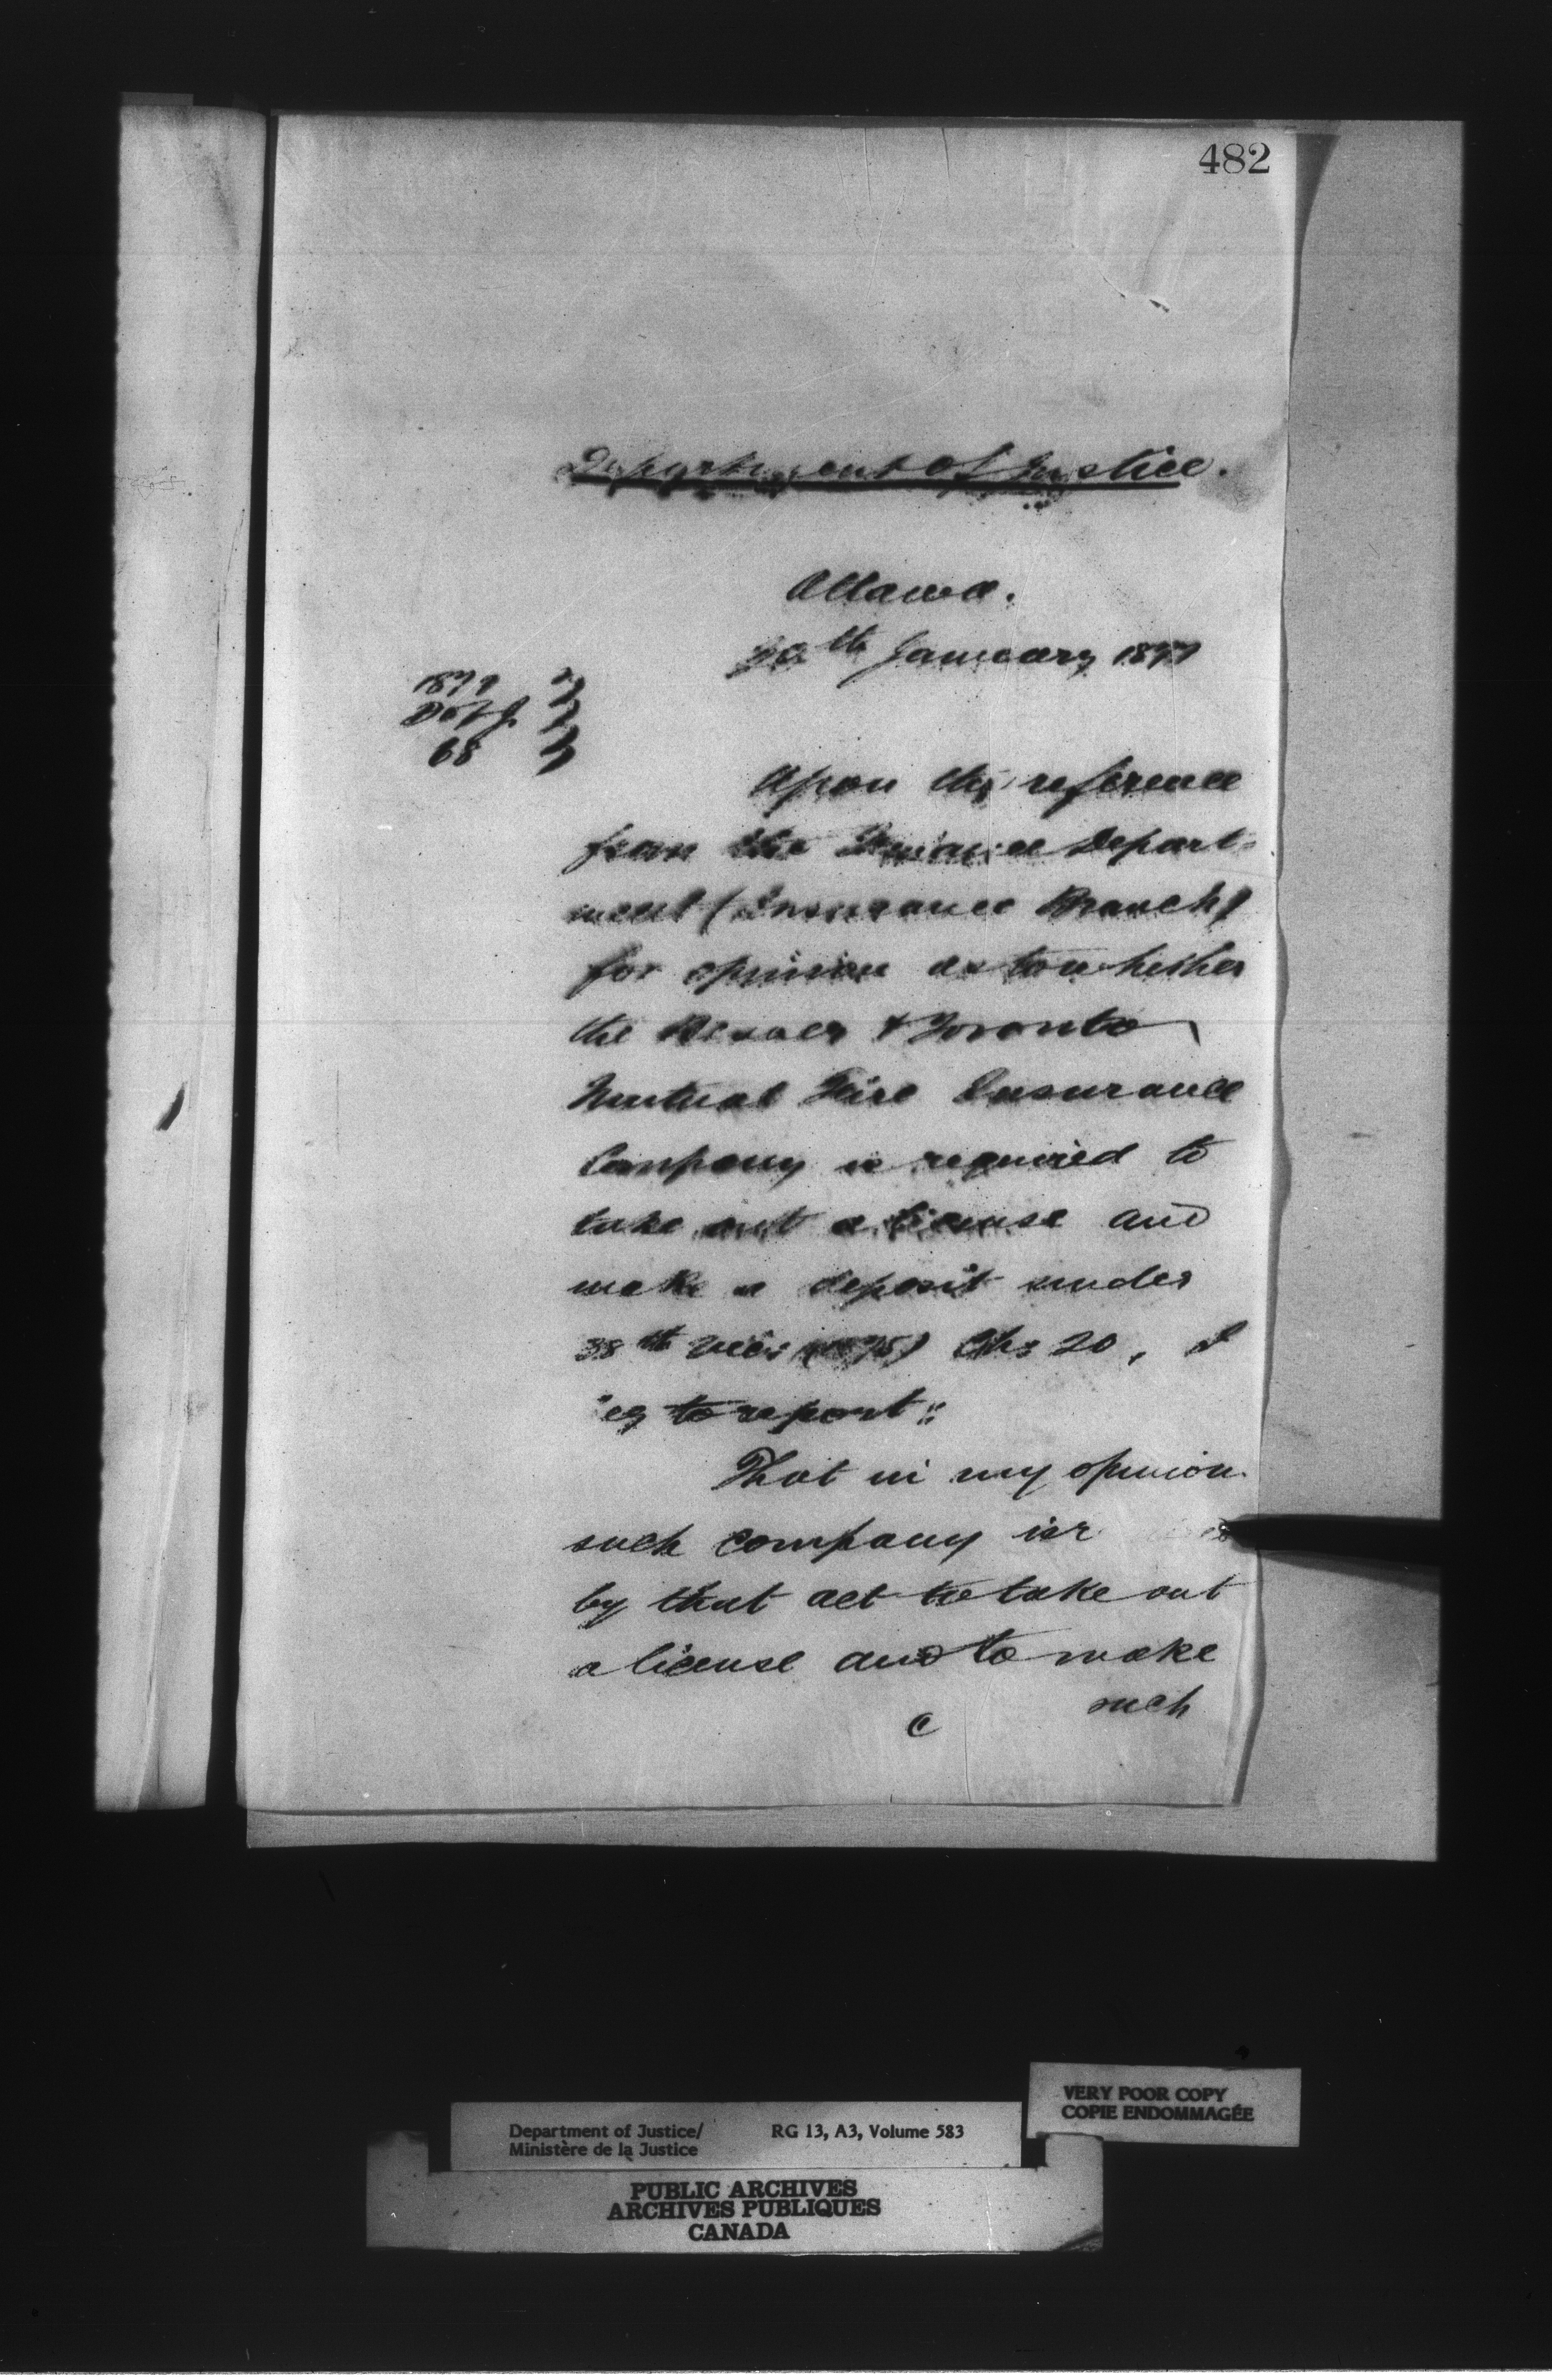 482
Department of Justice.
Ottawa.
20th January 1877
1877
D of J.
68
Upon the reference
from the Finance Depart-
ment (Insurance Branch)
for opinion as to whether
the Beaver & Toronto
Mutual Fire Insurance
Company is required to
take out a license and
make a deposit under
38th Vic: (1875) Ch: 20, I
eg to report:
That in my opinion
such company is r
by that act to take out
a license and to make
such
C
VERY POOR COPY
COPIE ENDOMMAGÉE
Department of Justice/ RG 13, A3, Volume 583
Ministère de la Justice
PUBLIC ARCHIVES
ARCHIVES PUBLIQUES
CANADA